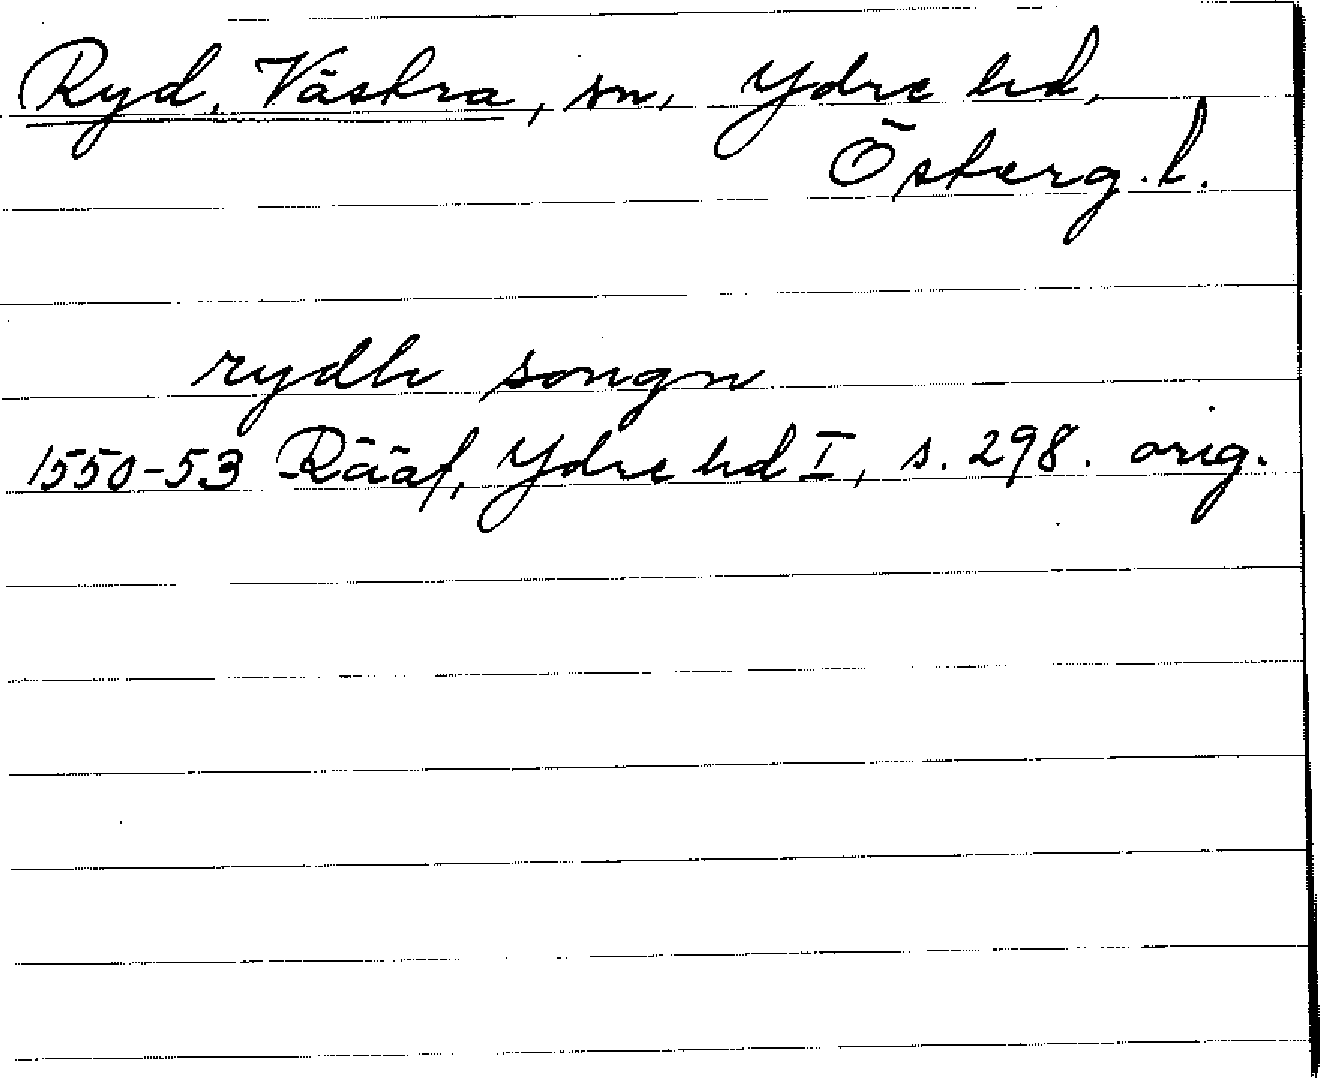 Ryd, Västra, sn, Ydre hd,
Österg. l.
rydh songn
1550-53 Rääf, Ydre hd I, s. 298. orig.